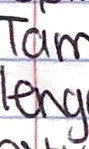 Tam
leng